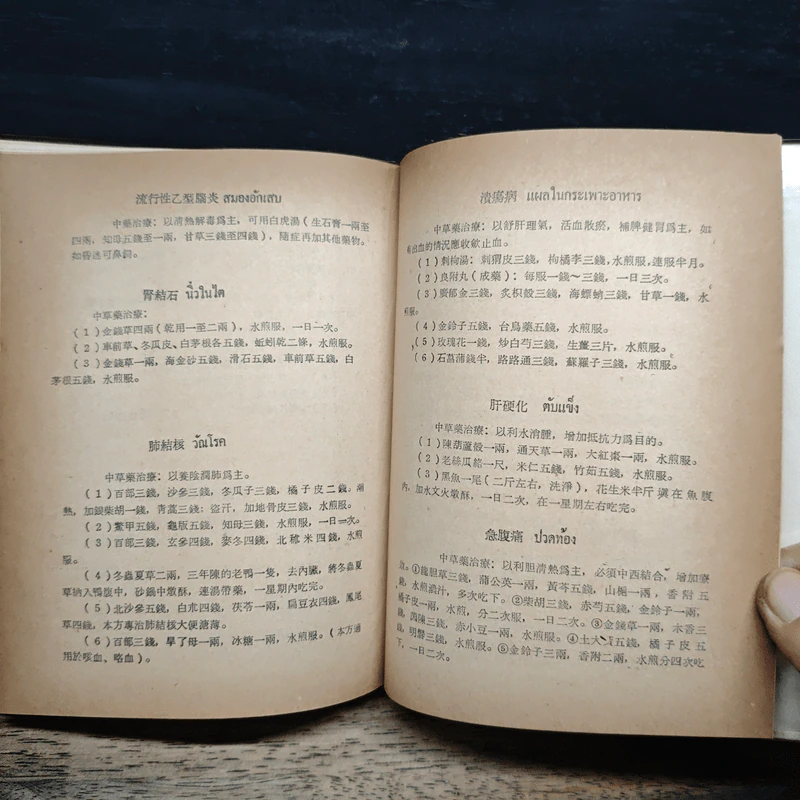 流行性乙型腦炎 สมองอักเสบ
中草藥治療：以清熱解毒爲主，可用白虎湯（生石膏一兩至
四兩，知母五錢至一兩，甘草三錢至四錢），隨症再加其他藥物。
如昏迷可鼻飼。
腎結石 นิ่วในไต
中草藥治療：
（1）金錢草四兩（乾用一至二兩），水煎服，一日一次。
（2）車前草、冬瓜皮、白茅根各五錢，蚯蚓乾二條，水煎服。
（3）金錢草一兩，海金砂五錢，滑石五錢，車前草五錢，白
茅根五錢，水煎服。
肺結核 วัณโรค
中草藥治療：以養陰潤肺爲主。
（1）百部三錢，沙參三錢，冬瓜子三錢，橘子皮二錢；潮
熱，加銀柴胡一錢，青蒿三錢；盜汗，加地骨皮三錢，水煎服。
（2）鱉甲五錢，龜版五錢，知母三錢，水煎服，一日一次。
（3）百部三錢，玄參四錢，麥冬四錢，北秫米四錢，水煎
服。
（4）冬蟲夏草二兩，三年陳的老鴨一隻，去內臟，將冬蟲夏
草納入鴨腹中，砂鍋中燉酥，連湯帶藥，一星期內吃完。
（5）北沙參五錢，白朮四錢，茯苓一兩，扁豆衣四錢，鳳尾
草四錢，本方專治肺結核大便溏薄。
（6）百部三錢，旱了母一兩，冰糖一兩，水煎服。（本方適
用於咳血、咯血）。
潰瘍病 แผลในกระเพาะอาหาร
中草藥治療：以舒肝理氣，活血散瘀，補脾健胃爲主，如
有出血的情況應收歛止血。
（1）刺枸湯：刺猬皮三錢，枸橘李三錢，水煎服，連服半月。
（2）良附丸（成藥）：每服一錢～三錢，一日三次。
（3）廣郁金三錢，炙枳殼三錢，海螵蛸三錢，甘草一錢，水
煎服。
（4）金鈴子五錢，台烏藥五錢，水煎服。
（5）玫瑰花一錢，炒白芍三錢，生薑三片，水煎服。
（6）石菖蒲錢半，路路通三錢，蘇羅子三錢，水煎服。
肝硬化 ตับแข็ง
中草藥治療：以利水消腫，增加抵抗力爲目的。
（1）陳葫蘆殼一兩，通天草一兩，大紅棗一兩，水煎服。
（2）老絲瓜絡一尺，米仁五錢，竹茹五錢，水煎服。
（3）黑魚一尾（二斤左右，洗淨），花生米半斤填在魚腹
內，加水文火燉酥，一日二次，在一星期左右吃完。
急腹痛 ปวดท้อง
中草藥治療：以利胆清熱爲主，必須中西結合，增加療
效。①龍胆草三錢，蒲公英一兩，黃芩五錢，山梔一兩，香附五
錢，水煎濃汁，多次吃下。②柴胡三錢，赤芍五錢，金鈴子一兩，
橘子皮一兩，水煎，分二次服，一日二次。③金錢草一兩，木香三
錢，茵陳三錢，赤小豆一兩，水煎服。④土大黃五錢，橘子皮五
錢，明礬三錢，水煎服。⑤金鈴子三兩，香附二兩，水煎分四次吃
下，一日二次。